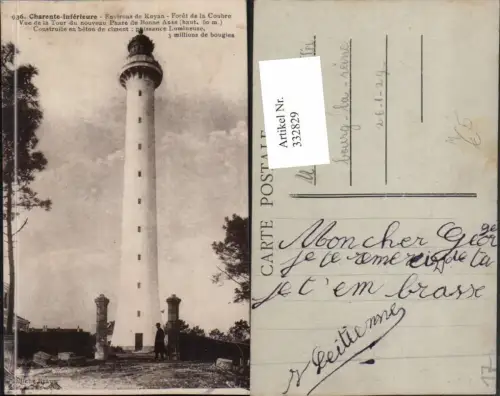 936. Charente-Inférieure - Environs de Royan - Forêt de la Coubre
Vue de la Tour du nouveau Phare de Bonne Anse (haut. 60 m.)
Construite en béton de ciment : puissance Lumineuse,
3 millions de bougies
CARTE POSTALE
Artikel Nr.
332829
bourg-la-reine
Mon cher Geor
ge
je te remercie de ta
je t'embrasse
17